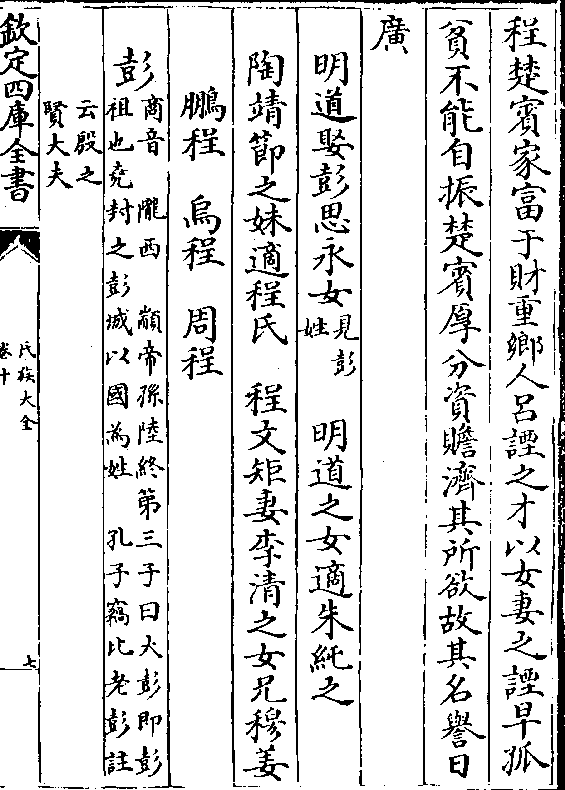 程楚賓家富于財重鄉人呂諲之才以女妻之諲早孤
貧不能自振楚賓厚分資贍濟其所欲故其名譽日
廣
明道娶彭思永女見彭姓　明道之女適朱純之
陶靖節之妹適程氏　程文矩妻李清之女兄穆姜
鵬程　烏程　周程
彭商音　隴西　顓帝孫陸終第三子曰大彭即彭
祖也堯封之彭城以國為姓　孔子竊比老彭註
云殷之
賢大夫
欽定四庫全書
氏族大全
卷十
七